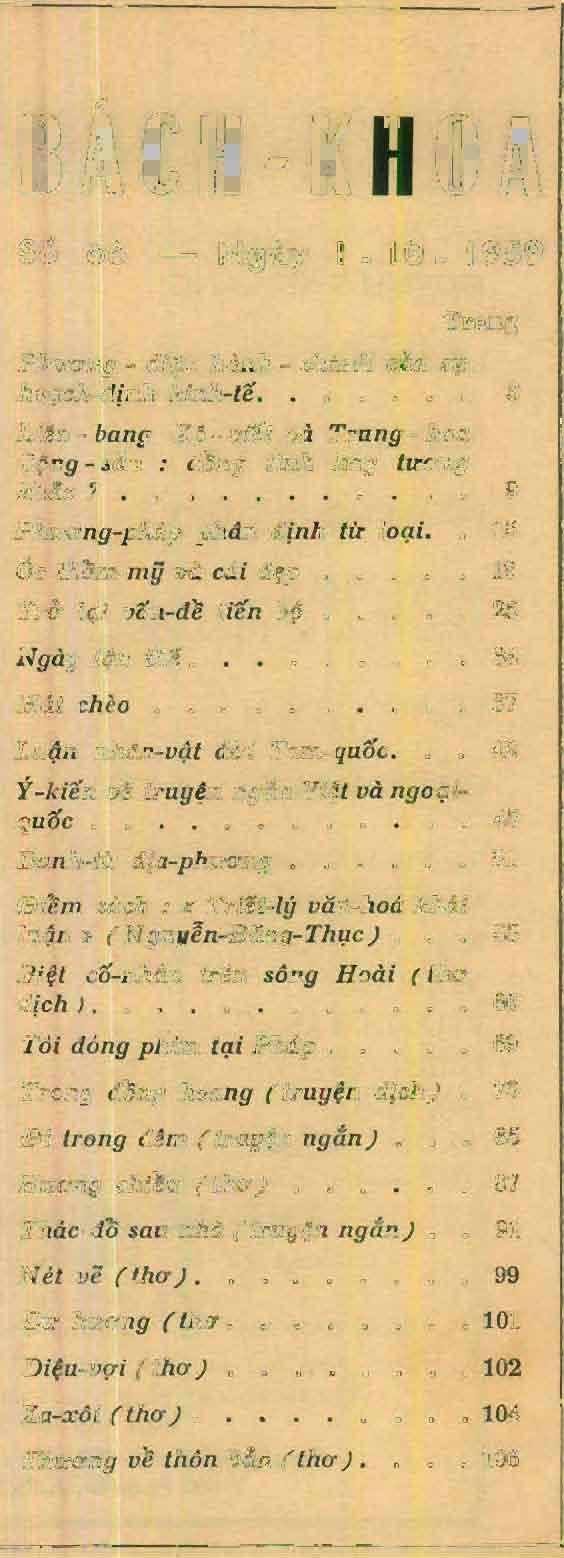 BÁCH-KHOA
Số 66 — Ngày 1.10.1959
Trang
Phương-diện hành-chánh của sự
hoạch-định kinh-tế. . . . . . . .
Liên-bang Xô-viết và Trung-hoa
Cộng-sản : đồng minh hay tương
khắc ? . . . . . . . . . . . 9
Phương-pháp phân định từ loại. .
Óc thẩm mỹ và cái đẹp . . . . .
Trở lại vấn-đề tiến bộ . . . . .
Ngày tận thế. . . . . . . . .
Hát chèo . . . . . . . . . . 37
Luận nhân-vật đời Tam-quốc. . .
Ý-kiến về truyện ngắn Việt và ngoại-
quốc . . . . . . . . . . . .
Danh-từ địa-phương . . . . . .
Điểm sách : « Triết-lý văn-hoá khái
luận » (Nguyễn-Đăng-Thục) . . .
Biệt cố-nhân trên sông Hoài (thơ
dịch). . . . . . . . . . . .
Tôi đóng phim tại Pháp . . . . .
Trong đồng hoang (truyện dịch) .
Đi trong đêm (truyện ngắn) . . .
Hương chiều (thơ) . . . . . . 87
Thác đổ sau nhà (truyện ngắn) . . 91
Nét vẽ (thơ). . . . . . . . . 99
hương (thơ . . . . . . . . 101
Diệu-vợi (thơ) . . . . . . . . 102
Xa-xôi (thơ) . . . . . . . . . 104
Thương về thôn bản (thơ). . . . 106